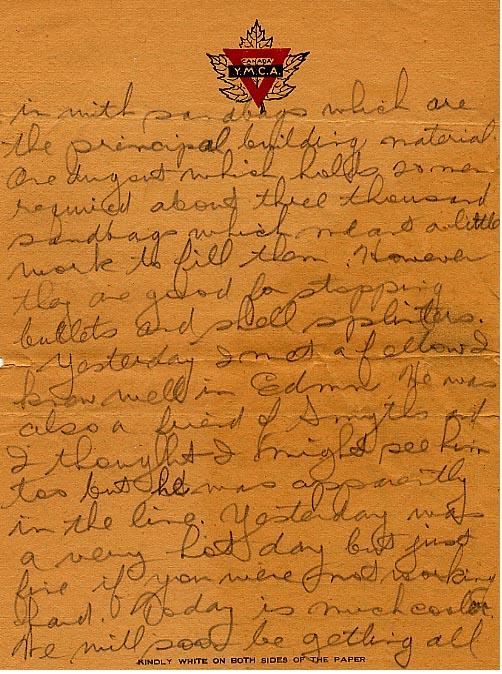 CANADA
Y.M.C.A.
in with sandbags which are
the principal building material
One dugout which holds 20 men
required about three thousand
sandbags which meant a little
work to fill them. However
they are good for stopping
bullets and shell splinters.
Yesterday I met a fellow I
know well in Edmn. He was
also a friend of Smyths and
I thought I might see him
too but he was apparently
in the line. Yesterday was
a very hot day but just
fine if you were not working
hard. Today is much cooler.
We will soon be getting all
KINDLY WRITE ON BOTH SIDES OF THE PAPER